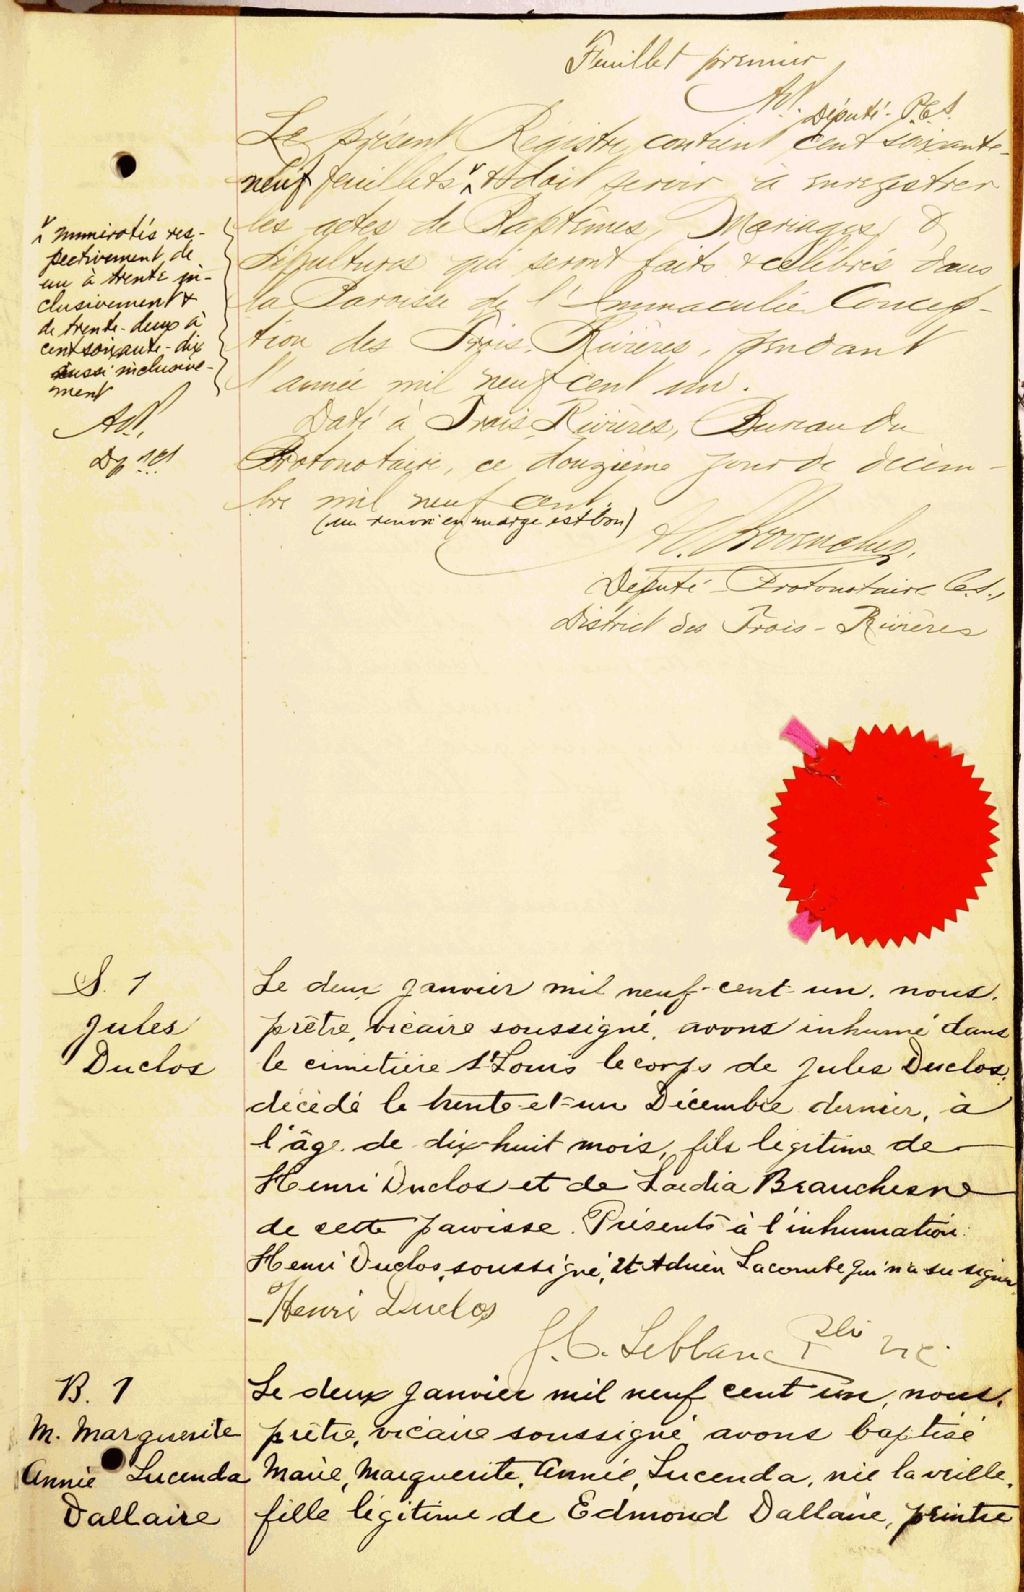 Feuillet premier
Député P.C.S
Le présent Régistre contient cent soixante-
neuf feuillets & doit servir à enregistrer
les actes de Baptêmes, Mariages &
Sépultures qui seront faits & célébrés dans
la Paroisse de l'Immaculée Concep-
tion des Trois-Rivières, pendant
l'année mil neuf cent un.
Daté à Trois Rivières, Bureau du
Protonotaire, ce douzième jour de décem-
bre mil neuf cent.
(un renvoi en marge est bon)
Député-Protonotaire C.S.,
District des Trois-Rivières
numérotés res-
pectivement, de
un à trente in-
clusivement &
de trente-deux à
cent soixante-dix
aussi inclusive-
ment
S. 1
Jules
Duclos
Le deux janvier mil neuf-cent-un, nous,
prêtre, vicaire soussigné, avons inhumé dans
le cimetière St Louis le corps de Jules Duclos,
décédé le trente-et-un Décembre dernier, à
l'âge de dix-huit mois, fils légitime de
Henri Duclos et de Beauchesne
de cette paroisse. Présents à l'inhumation:
Henri Duclos, soussigné, et Adrien Lacombe qui n'a su signer.
Henri Duclos
J. C. Leblanc Ptre vic.
B. 1
M. Marguerite
Annie Lucenda
Dallaire
Le deux janvier mil neuf cent un, nous,
prêtre, vicaire soussigné avons baptisé
Marie, Marguerite, Annie, Lucenda, née la veille,
fille légitime de Edmond Dallaire, peintre